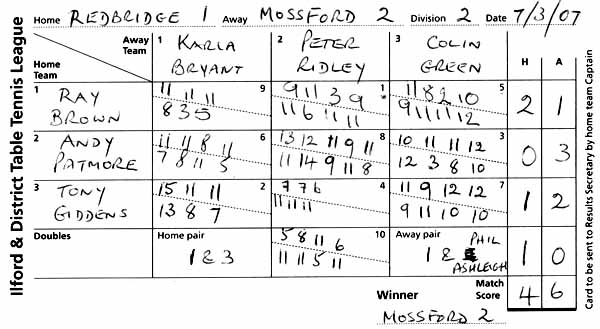 Ilford & District Table Tennis League
Home REDBRIDGE 1 Away MOSSFORD 2 Division 2 Date 7/3/07
Away Team
Home Team
1 KARLA BRYANT
2 PETER RIDLEY
3 COLIN GREEN
H A
1 RAY BROWN
11 11 11 9
8 3 5
9 11 3 9 1
11 6 11 11
11 8 2 10 5
9 11 11 11 12
2 1
2 ANDY PATMORE
11 11 8 11 6
7 8 11 5
13 12 11 9 11 8
11 14 9 11 8
10 11 11 12 3
12 3 8 10
0 3
3 TONY GIDDENS
15 11 11 2
13 8 7
7 7 6 4
11 11 11
11 9 12 12 7
9 11 10 10
1 2
Doubles
Home pair
1 & 3
5 8 11 6 10
11 11 5 11
Away pair
1 & PHIL ASHLEIGH
1 0
Match Score 4 6
Winner
MOSSFORD 2
Card to be sent to Results Secretary by home team Captain